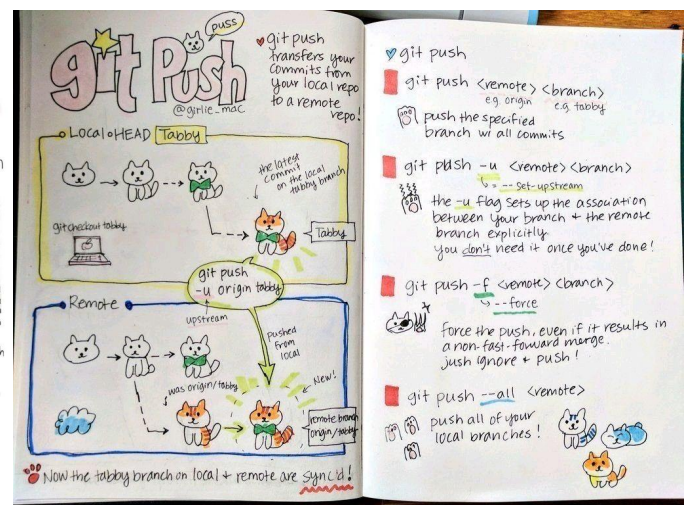 git Push
puss
@girlie_mac
git push
transfers your
commits from
your local repo
to a remote
repo!
Local HEAD Tabby
the latest
commit
on the local
tabby branch
git checkout tabby
Tabby
git push
-u origin tabby
upstream
Remote
pushed
from
local
was origin/tabby
New!
remote branch
origin/tabby
Now the tabby branch on local + remote are sync'd!
git push
git push <remote> <branch>
e.g. origin e.g. tabby
push the specified
branch w/ all commits
git push -u <remote> <branch>
= --set-upstream
the -u flag sets up the association
between your branch + the remote
branch explicitly
you don't need it once you've done!
git push -f <remote> <branch>
--force
force the push, even if it results in
a non-fast-forward merge.
just ignore + push!
git push --all <remote>
push all of your
local branches!